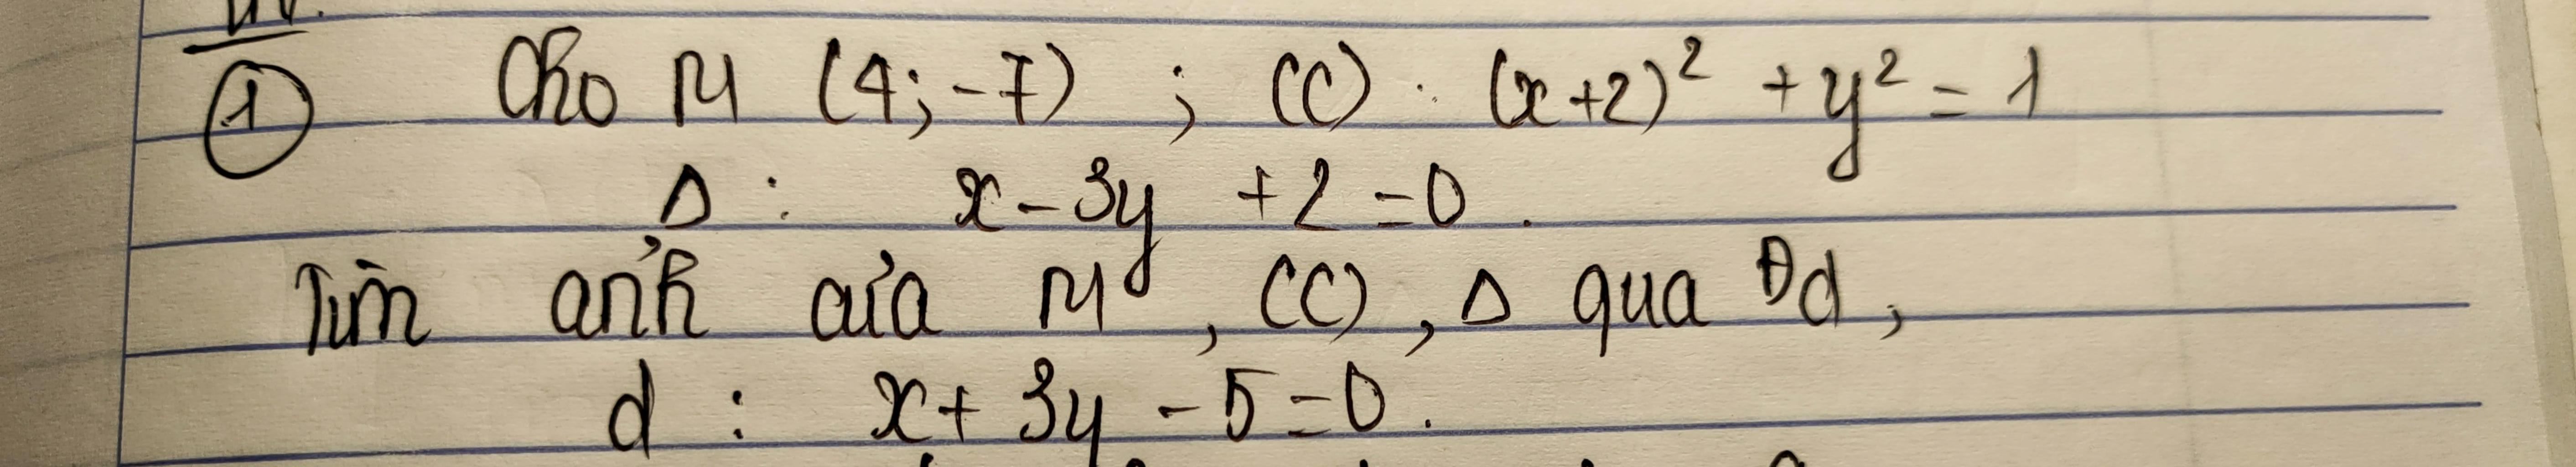 ① Cho M (4; -7) ; (C) : (x+2)² + y² = 1
Δ : x - 3y + 2 = 0.
Tìm ảnh của M, (C), Δ qua Đd,
d : x + 3y - 5 = 0.